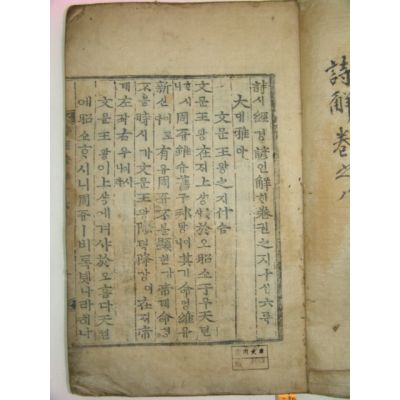 詩解卷之八
詩시經경諺언解ᄒᆡ卷권之지十십六륙
大대雅아
文문王왕之지什습
文문王왕在ᄌᆡ上샹ᄒᆞ샤於오昭쇼于우天텬
ᄒᆞ시니周쥬雖슈舊구邦방이나其기命명維유
新신이로다有유周쥬不블顯현가帝뎨命명
不블時시가文문王왕陟텩降강이在ᄌᆡ帝
뎨左좌右우ㅣ시니라
文문王왕이上샹에겨샤於오홉다天텬
에昭쇼ᄒᆞ시니周쥬ㅣ비록녯나라히나